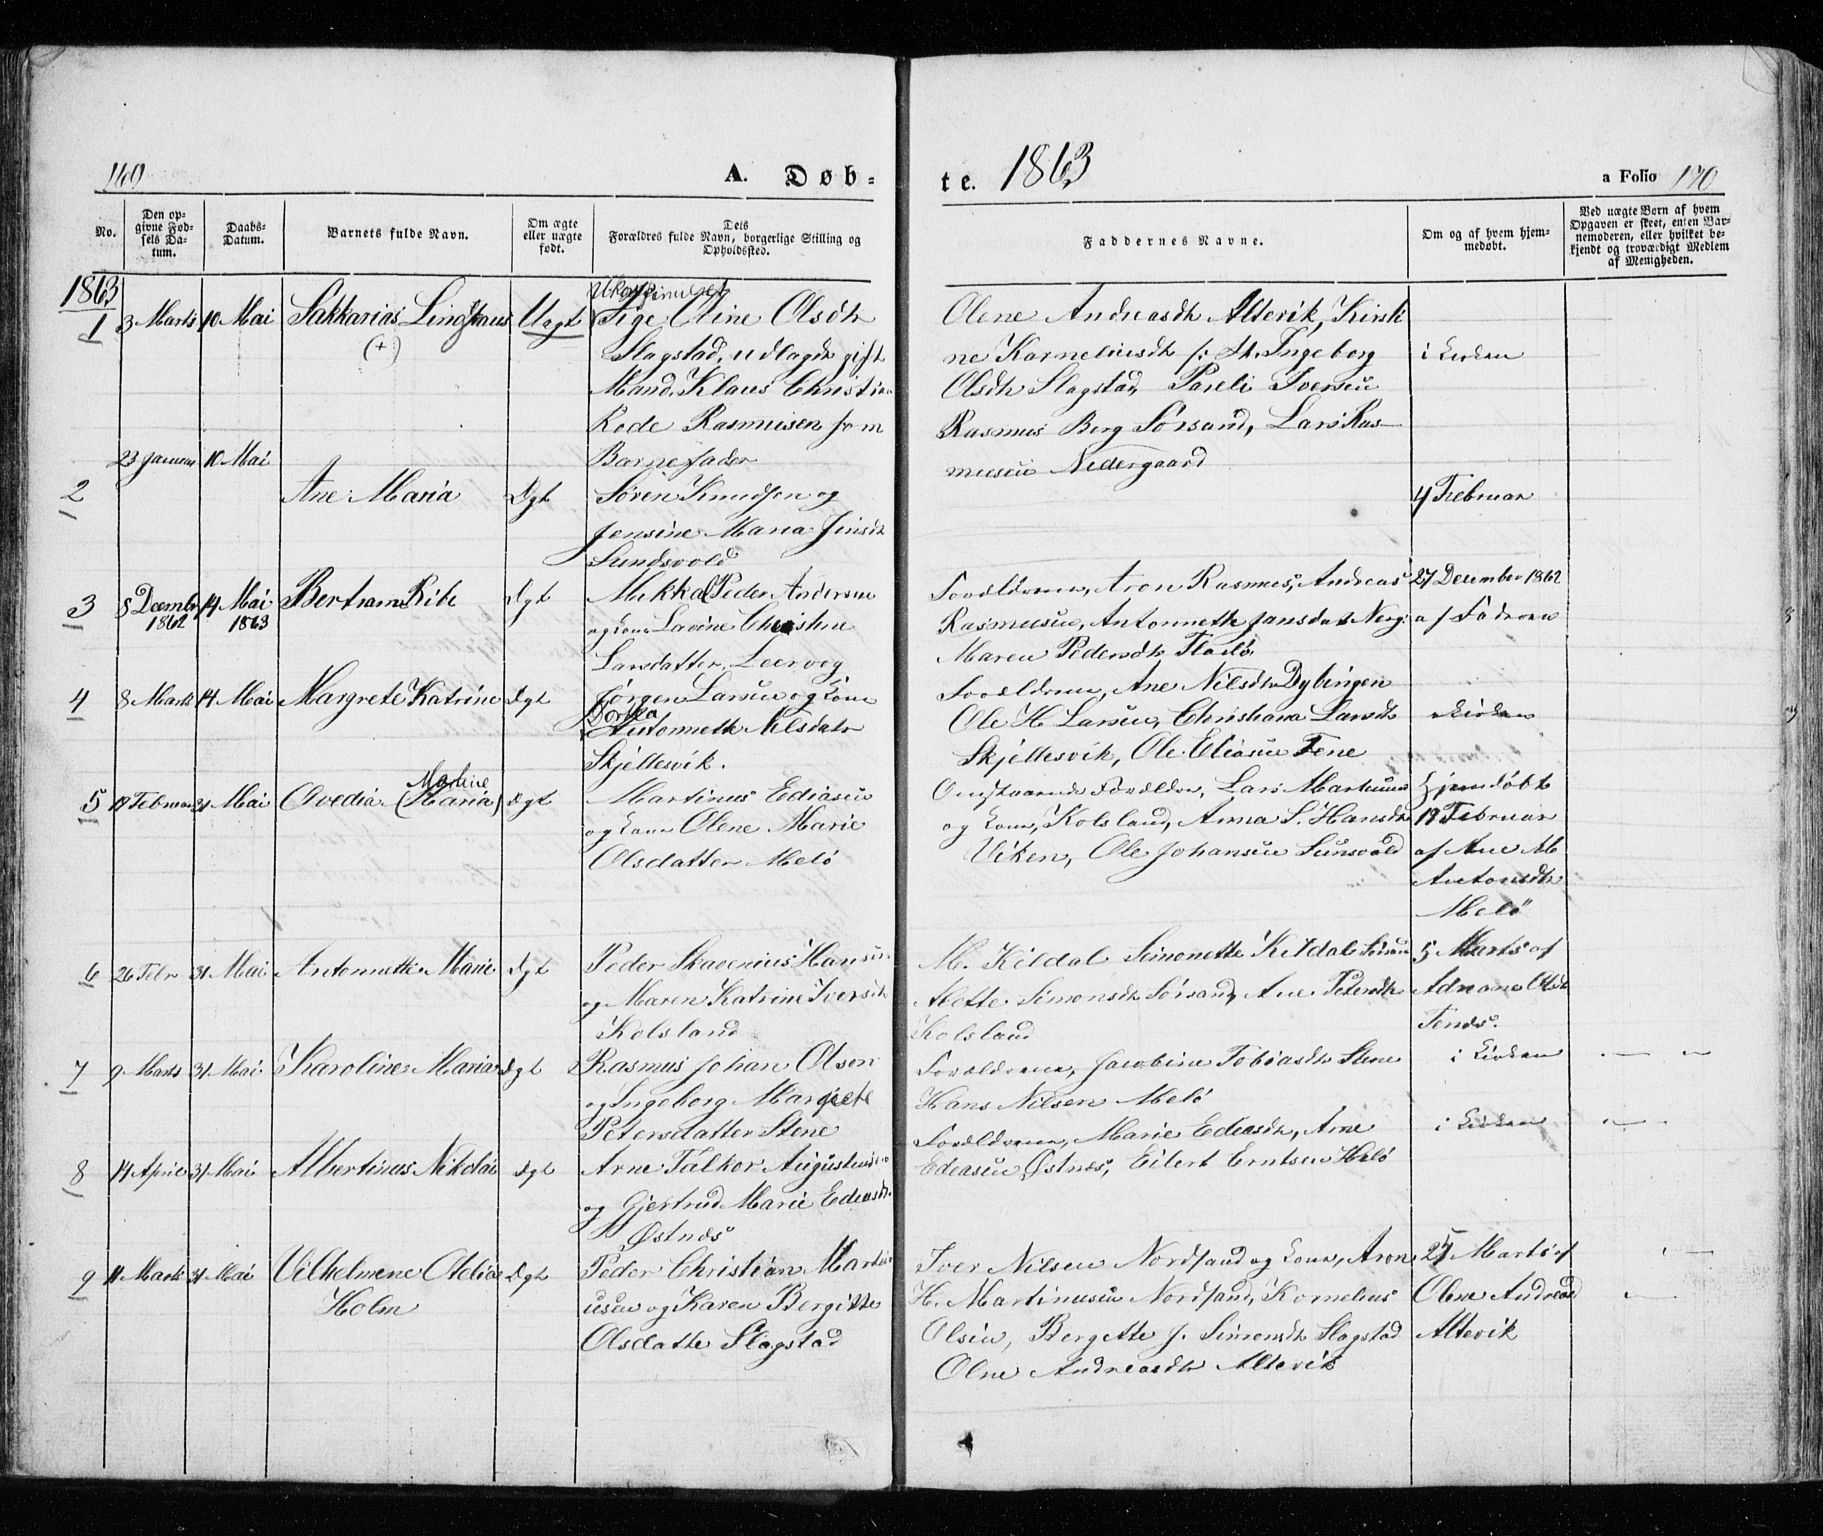 169
A. Døb-
te. 1863
a Folio 170
No.
Den op-
givne Fød-
sels Da-
tum.
Daabs-
Datum.
Barnets fulde Navn.
Om ægte
eller uægte
født.
Dets
Forældres fulde Navn, borgerlige Stilling og
Opholdssted.
Faddernes Navne.
Om og af hvem hjem-
medøbt.
Ved uægte Børn af hvem
Opgaven er skeet, enten Bar-
nemoderen, eller hvilket be-
kjendt og troværdigt Medlem
af Menigheden.
1863
1 3 Marts 10 Mai Sakkarias Lindhaus Uægt
(+)
Pige Oline Olsdtr
Slagstad, udlagdt gift
Mand Klaus Christian
Rode Rasmusen som
Barnefader
Olene Andreasdtr Altevik, Kirsti
ne Korneliusdtr Ingeborg
Olsdtr Slagstad, Pareli Iversen
Rasmus Berg Sørsand, Lars Ras-
musen Nedergaard
i Kirken
2 23 Januar 10 Mai Ane Maria Ægt
Søren Knudsen og
Jensine Maria Jensdtr
Sundsvold
4 Februar
3 8 December 1862 14 Mai 1863 Bertram Rik Ægt
Mikkal Peder Andersen
og Kone Lavine Christine
Larsdatter, Leervog
Forældrene, Aron Rasmus, Andreas
Rasmusen, Antonnette Jansdatr
Maren Pedersdtr Fladø
27 December 1862
af Faderen
4 8 Marts 14 Mai Margrete Katrine Ægt
Jørgen Larsen og Kone
Dorthea
Antonnette Nilsdatr
Skjellesvik.
Forældrene, Ane Nilsdtr Dybingen
Ole H Larsen, Christiana Larsdtr
Skjellesvik, Ole Eliasen Fene
i Kirken
5 19 Februar 31 Mai Ovedia (Maria) Ægt
Martine
Martinus Ediasen
og Kone Olene Marie
Olsdatter Melø
Forældre, Lars Martinusen
og Kone, Kolsland, Anna S. Hansdtr
Viken, Ole Johansen Sunsvold
Hjemdøbt
19 Februar
af Ane M
Antonsdtr
Melø
6 26 Febr 31 Mai Antonnette Marie Ægt
Peder Skavenius Hansen
og Maren Katrine Iversdtr
Kolsland
M. Kildal Simonette Kildal Sørsand
Mette Simonsdtr Sørsand, Ane Petersdtr
Kolsland
5 Marts af
Adriane Olsdtr
Fenes.
7 9 Marts 31 Mai Karoline Maria Ægt
Rasmus Johan Olsen
og Ingeborg Margrete
Petersdatter Stene
Forældrene, Jacobine Tobiasdtr Stene
Hans Nilsen Melø
i Kirken
8 14 April 31 Mai Albertinus Nikolai Ægt
Arne Falkor Augustinusen
og Gjertrud Marie Ediasdtr
Østnæs
Forældrene, Marie Ediasdtr, Arne
Ediasen Østnæs, Eilert Erntsen Melø
i Kirken
9 11 Marts 31 Mai Vilhelmine Otelia Ægt
Holm
Peder Christian Martin
usen og Karen Bergitte
Olsdatte Slagstad
Iver Nilsen Nordsand og Kone, Aron
H. Martinusen Nordsand, Kornelius
Olsen, Bergette J. Simonsdtr Slagstad
Olne Andreasdtr Altevik
25 Marts af
Olene Andreasd
Altevik